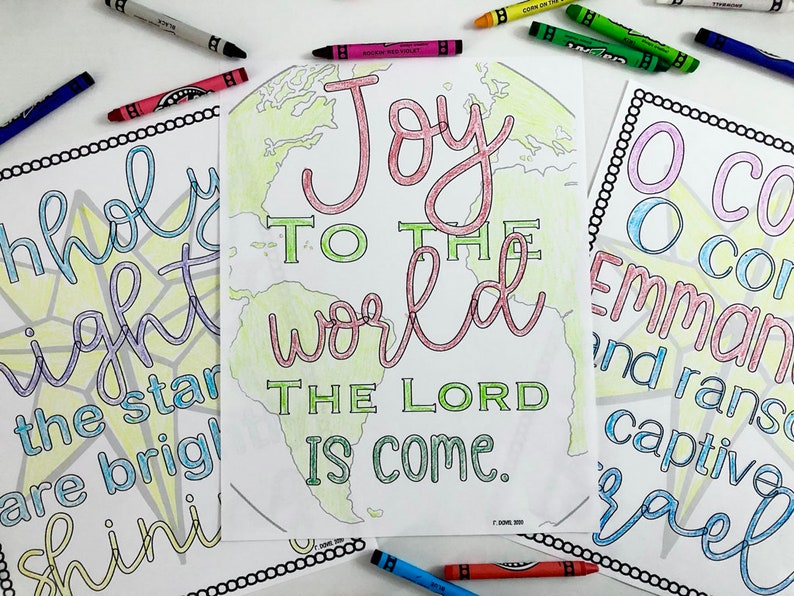 BLACK
ROCKIN' RED VIOLET
CORN ON THE
SNOWBALL
holy
night
the star
are bright
shinin
Joy
TO THE
world
THE LORD
IS COME.
O CO
O com
EMMAN
and ranso
captive
rael